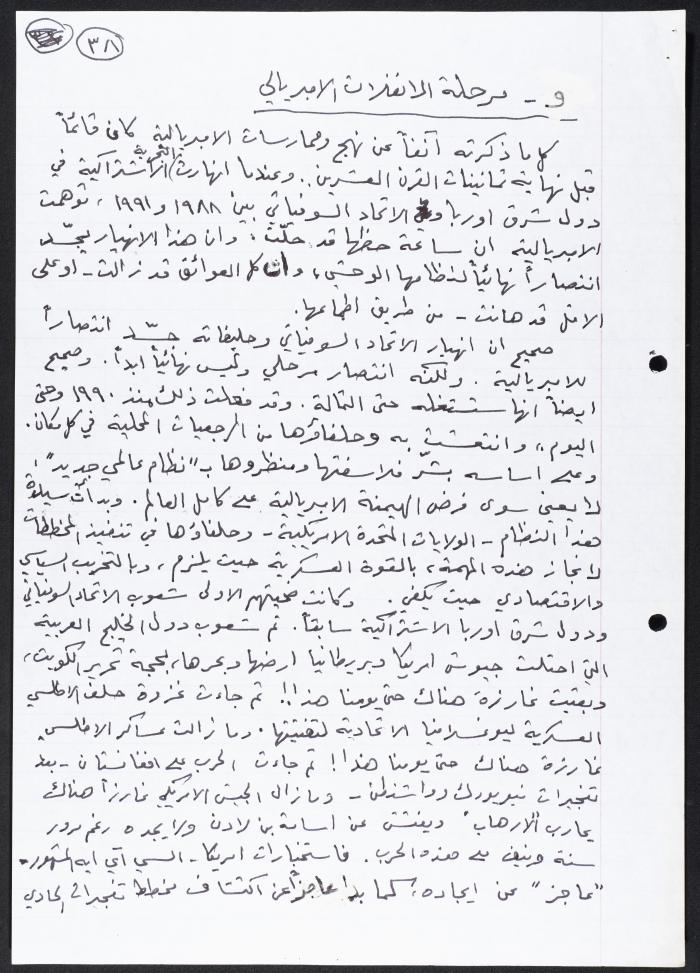 ٣٨
و - مرحلة الانفلات الامبريالي
كل ما ذكرته آنفاً عن نهج وممارسات الامبريالية كان قائماً
قبل نهاية ثمانينات القرن العشرين. وعندما انهارت التجربة الاشتراكية في
دول شرق اوربا و الاتحاد السوفياتي بين ١٩٨٨ و ١٩٩١، توهمت
الامبريالية ان ساعة حظها قد حلّت، وان هذا الانهيار يجسّد
انتصاراً نهائياً لنظامها الوحشي، وان كل العوائق قد زالت - او على
الاقل قد هانت - من طريق اطماعها.
صحيح ان انهيار الاتحاد السوفياتي وحليفاته جسّد انتصاراً
للامبريالية. ولكنّه انتصار مرحلي وليس نهائياً ابداً. وصحيح
ايضاً انها ستستغله حتى الثمالة. وقد فعلت ذلك منذ ١٩٩٠ وحتى
اليوم، وانتعشت به وحلفاؤها من الرجعيات المحلية في كل مكان.
وعلى اساسه بشّر فلاسفتها ومنظروها ب"نظام عالمي جديد"
لا يعني سوى فرض الهيمنة الامبريالية على كامل العالم. وبدأت سيدة
هذا النظام - الولايات المتحدة الامريكية - وحلفاؤها في تنفيذ المخططات
لانجاز هذه المهمة، بالقوة العسكرية حيث يلزم، وبالتخريب السياسي
والاقتصادي حيث يكفي. وكانت ضحيتهم الاولى شعوب الاتحاد السوفياتي
ودول شرق اوربا الاشتراكية سابقاً. ثم شعوب دول الخليج العربية
التي احتلت جيوش امريكا وبريطانيا ارضها وبحرها، بحجة تحرير الكويت،
وبقيت غارزة هناك حتى يومنا هذا!! ثم جاءت غزوة حلف الاطلسي
العسكرية ليوغسلافيا الاتحادية لتفتيتها. وما زالت عساكر الاطلسي
غارزة هناك حتى يومنا هذا! ثم جاءت الحرب على افغانستان - بعد
تفجيرات نيويورك وواشنطن - وما زال الجيش الامريكي غارزاً هناك
يحارب "الارهاب" ويفتش عن اسامة بن لادن ولا يجده رغم مرور
سنة ونيف على هذه الحرب. فاستخبارات امريكا - السي آي ايه المشهورة -
"عاجز" عن ايجاده، كما بدا عاجزاً عن اكتشاف مخطط تفجيرات الحادي